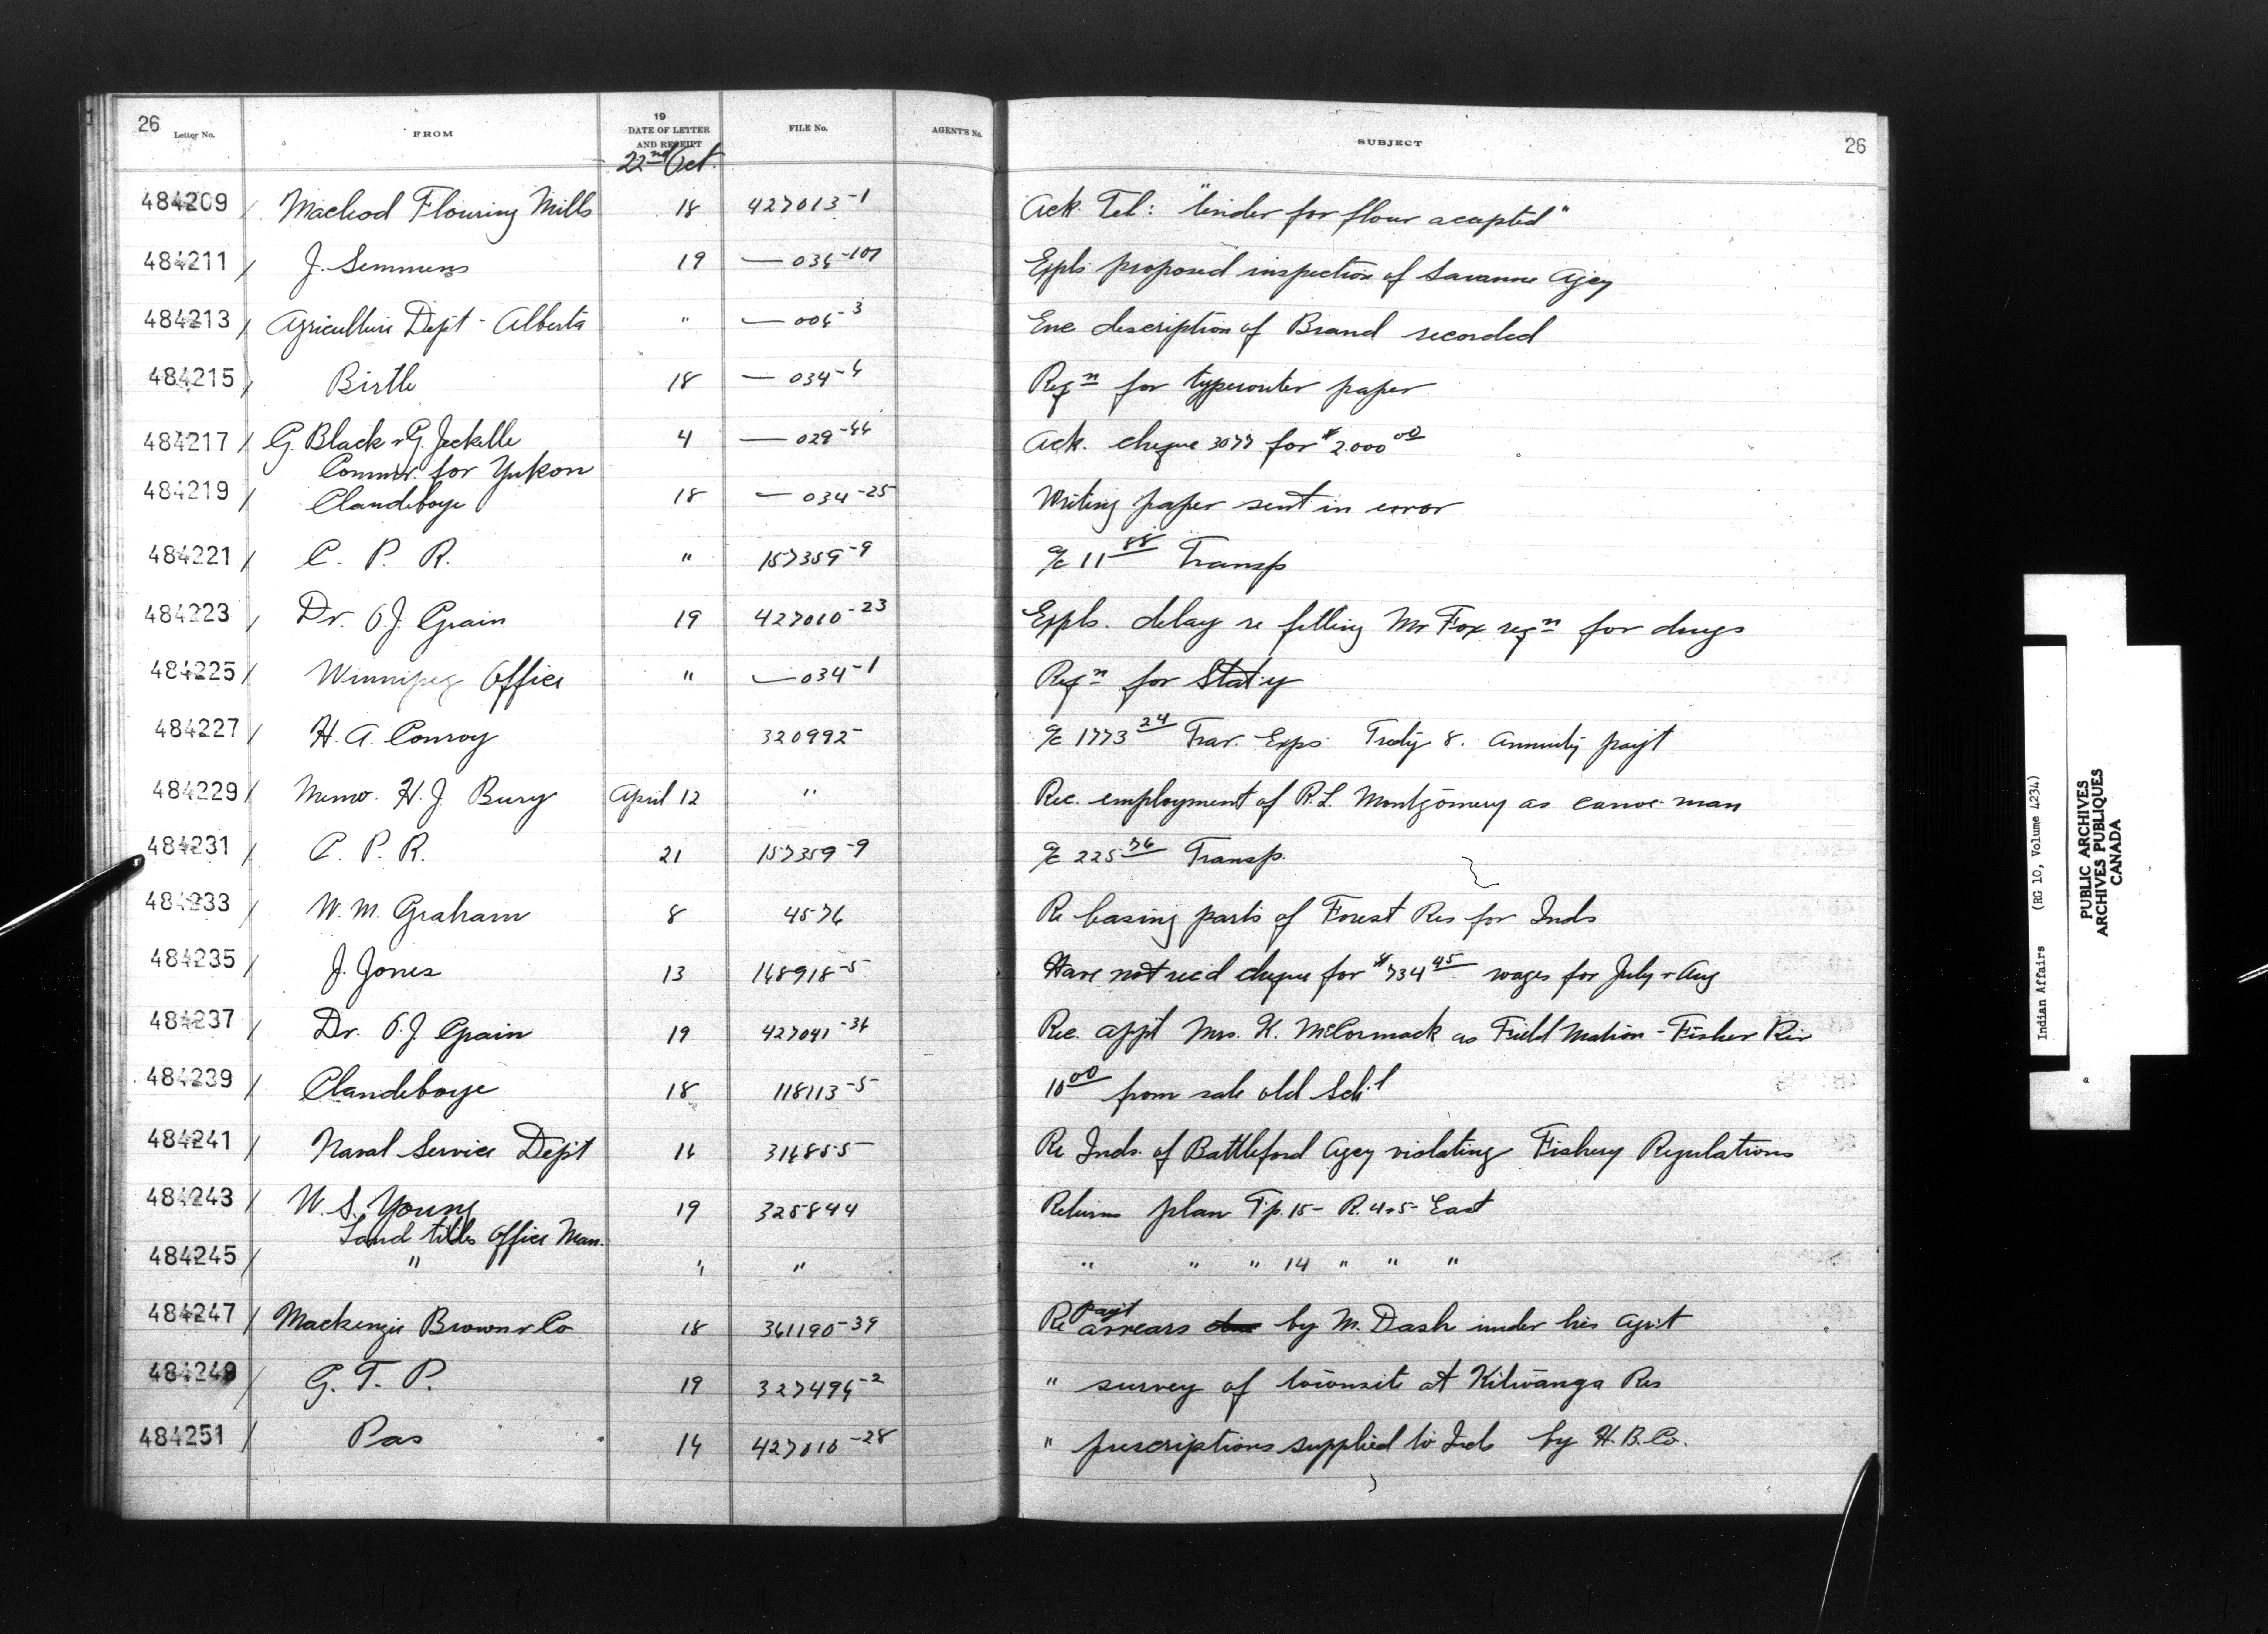 26 Letter No. FROM 19 DATE OF LETTER AND RECEIPT FILE No. AGENT'S No. SUBJECT 26
22nd Oct.
484209 / Macleod Flouring Mills 18 427013-1 Ack. Tel: "tender for flour accepted"
484211 / J. Semmens 19 — 034-107 Expls proposed inspection of Savanne Agcy
484213 / Agriculture Dept - Alberta " — 004-3 Enc description of Brand recorded
484215 / Birtle 18 — 034-4 Reqn for typewriter paper
484217 / G. Black & G. Jeckelle 4 — 029-44 Ack. cheque 3077 for $2.000 00
Commr. for Yukon
484219 / Clandeboye 18 — 034-25 Writing paper sent in error
484221 / C. P. R. " 157359-9 a/c 11 88 Transp
484223 / Dr. O.J. Grain 19 427010-23 Expls. delay re filling Mr Fox reqn for drugs
484225 / Winnipeg Office " — 034-1 Reqn for Stat'y
484227 / H. A. Conroy 320992 a/c 1773 24 Trav. Exps Treaty 8. Annuity pay't
484229 / Memo. H. J. Bury April 12 " Rec. employment of R.L. Montgomery as canoe man
484231 / C. P. R. 21 157359-9 a/c 225 76 Transp.
484233 / W. M. Graham 8 4576 Re leasing parts of Forest Res for Inds
484235 / J. Jones 13 148918-5 Have not rec'd cheque for $734 45 wages for July & Aug
484237 / Dr. O.J. Grain 19 427041-34 Rec. app't Mrs. K. McCormack as Field Matron - Fisher Riv
484239 / Clandeboye 18 118113-5 10 00 from sale old Sch'l
484241 / Naval Service Dep't 14 314855 Re Inds. of Battleford Agcy violating Fishery Regulations
484243 / W. S. Young 19 325844 Returns plan Tp. 15 - R. 4 & 5 East
Land titles Office Man.
484245 / " " " " " " 14 " " "
484247 / Mackenzie Brown & Co 18 361190-39 Re pay't arrears by M. Dash under his agr't
484249 / G. T. P. 19 327494-2 " survey of townsite at Kitwanga Res
484251 / Pas 14 427010-28 " prescriptions supplied to Inds by H. B. Co.
Indian Affairs (RG 10, Volume 4234)
PUBLIC ARCHIVES
ARCHIVES PUBLIQUES
CANADA